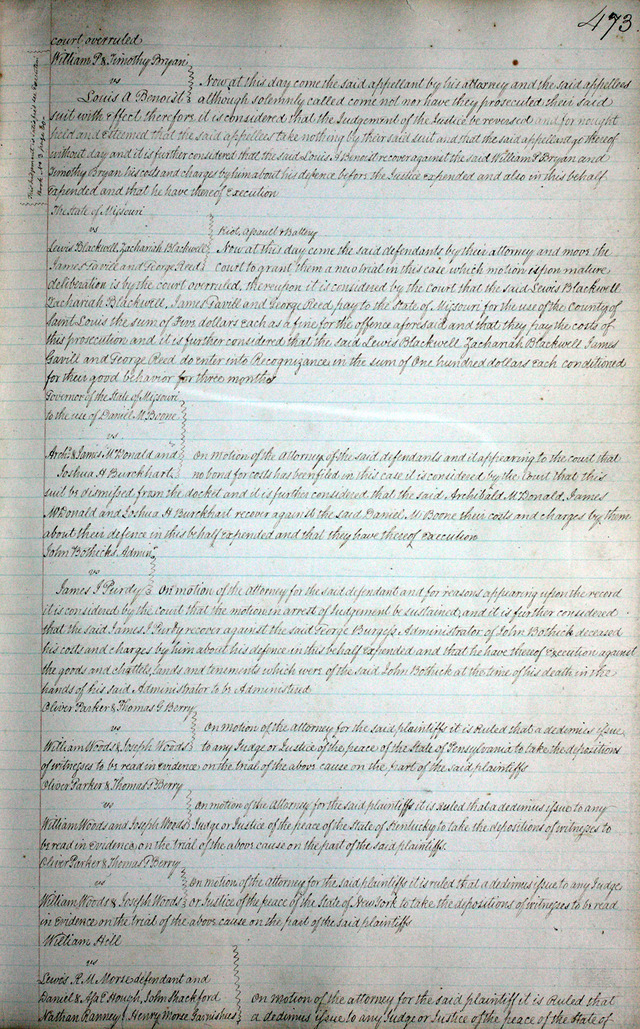 473
court overruled
William P. & Timothy Bryan
vs Now at this day come the said appellant by his attorney and the said appellees
Louis A Benoist although solemnly called come not nor have they prosecuted their said
suit with effect therefore it is considered that the Judgement of the Justice be reversed and for nought
held and esteemed that the said appellees take nothing by their said suit and that the said appellant go thereof
without day and it is further considered that the said Louis A Benoist recover against the said William P Bryan and
Timothy Bryan his costs and charges by him about his defence before the Justice expended and also in this behalf
expended and that he have thereof Execution
The State of Missouri
vs Riot, assault & Battery
Lewis Blackwell, Zachariah Blackwell Now at this day come the said defendants by their attorney and move the
James Gavill and George Reed court to grant them a new trial in this case which motion is upon mature
deliberation is by the court overruled, thereupon it is considered by the court that the said Lewis Blackwell
Zachariah Blackwell, James Gavill and George Reed pay to the State of Missouri for the use of the County of
Saint Louis the sum of Five dollars each as a fine for the offence aforesaid and that they pay the costs of
this prosecution and it is further considered that the said Lewis Blackwell Zachariah Blackwell James
Gavill and George Reed do enter into Recognizance in the sum of One hundred dollars each conditioned
for their good behavior for three months
Governor of the State of Missouri
to the use of Daniel M Boone
vs
Archd & James McDonald and On motion of the Attorney of the said defendants and it appearing to the court that
Joshua H Burckhart no bond for costs has been filed in this case it is considered by the Court that this
suit be dismissed from the docket and it is further considered that the said Archibald McDonald, James
McDonald and Joshua H Burckhart recover against the said Daniel M Boone their costs and charges by them
about their defence in this behalf expended and that they have thereof execution
John Bothicks Adminr
vs
James J Purdy On motion of the Attorney for the said defendant and for reasons appearing upon the record
it is considered by the court that the motion in arrest of Judgement be sustained, and it is further considered
that the said James J Purdy recover against the said George Burges Administrator of John Bothick deceased
his costs and charges by him about his defence in this behalf expended and that he have thereof Execution against
the goods and chattels, lands and tenements which were of the said John Bothick at the time of his death in the
hands of his said Administrator to be Administered
Oliver Parker & Thomas G Berry
vs On motion of the Attorney for the said plaintiffs it is Ruled that a dedimus issue
William Woods & Joseph Woods to any Judge or Justice of the peace of the State of Pensylvania to take the depositions
of witnesses to be read in evidence, on the trial of the above cause on the part of the said plaintiffs
Oliver Parker & Thomas P Berry
vs On motion of the Attorney for the said plaintiffs it is Ruled that a dedimus issue to any
William Woods and Joseph Woods Judge or Justice of the peace of the State of Kentucky to take the depositions of witnesses to
be read in evidence, on the trial of the above cause on the part of the said plaintiffs.
Oliver Parker & Thomas P Berry
vs On motion of the attorney for the said plaintiffs it is ruled that a dedimus issue to any Judge
William Woods & Joseph Woods or Justice of the peace of the State of New York to take the depositions of witnesses to be read
in evidence on the trial of the above cause on the part of the said plaintiffs
William Hell
vs
Lewis R. M. Morse defendant and
Daniel & Asa Hough, John Shackford On motion of the attorney for the said plaintiff it is Ruled that
Nathan Ranney & Henry Morse Garnishees a dedimus issue to any Judge or Justice of the peace of the State of